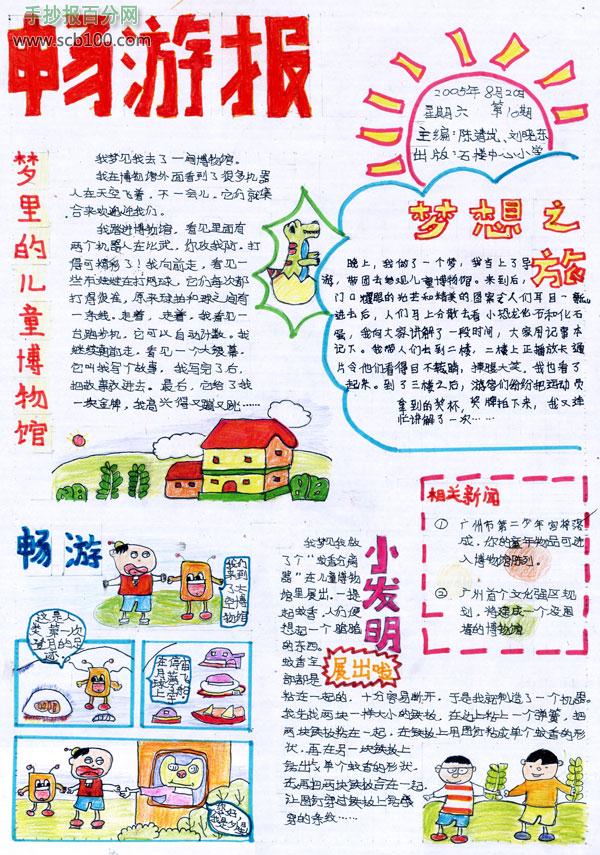 手抄报百分网
www.scb100.com
畅游报
2005年8月20日
星期六 第10期
主编:陈靖岚、刘晓东
出版:石楼中心小学
梦里的儿童博物馆
我梦见我去了一间博物馆。
我在博物馆外面看到了很多机器
人在天空飞着,不一会儿,它们就集
合来欢迎我们。
我踏进博物馆,看见里面有
两个机器人在比武,你攻我防,打
得可精彩了!我向前走,看见一
些在打网球,它们每次都
打得很准,原来球拍和球之间有
一条线。走着,走着,我看见一
台跑步机,它可以自动计数。我
继续向前走,看见一个大银幕,
它叫我写个故事,我写完了后,
把故事放进去。最后,它给了我
一块金牌,我高兴得又蹦又跳……
梦想之旅
晚上,我做了一个梦,我当上了导
游,带团去参观儿童博物馆。来到后,
门口耀眼的光芒和精美的图案令人们耳目一新。
进去后,人们马上分散去看小恐龙化石和化石
蛋,我向大家讲解了一段时间,大家用记事本
记下。我带人们去到二楼,二楼上正播放卡通
片令他们看得目不转睛,捧腹大笑,我也看了
起来。到了三楼之后,游客们纷纷把运动员
拿到的奖杯,奖牌拍下来,我又连
忙讲解了一次……
相关新闻
① 广州市第二少年宫将落
成,你的童年物品可进
入博物馆陈列。
② 广州首个文化强区规
划,将建成一个没围
墙的博物馆
畅游
我们来到了太空博物馆
这是人类第一次登月的足迹
小发明
展出啦
我梦见我放
了个“蚊香分离
器”在儿童博物
馆里展出。一提
起蚊香,人们便
想起一个脆脆
的东西。
蚊香全
部都是
粘在一起的,十分容易断开,于是我就制造了一个机器。
我先找两块一样大小的铁板,在边上粘上一个弹簧,把
两块铁板粘在一起,在铁板上用图钉粘成单个蚊香的形
状,再在另一块铁板上
钻出成单个蚊香的形状。
在再把两块铁板合在一起,
让图钉穿过铁板上钻成
穿的条纹……